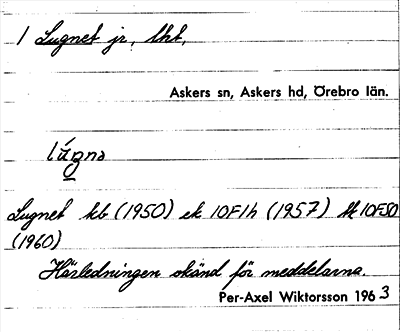 1 Lugnet jr, lht,
Askers sn, Askers hd, Örebro län.
lúgnə
Lugnet kb (1950) ek 10F1h (1957) tk 10F50
(1960)
Härledningen okänd för meddelarna.
Per-Axel Wiktorsson 1963